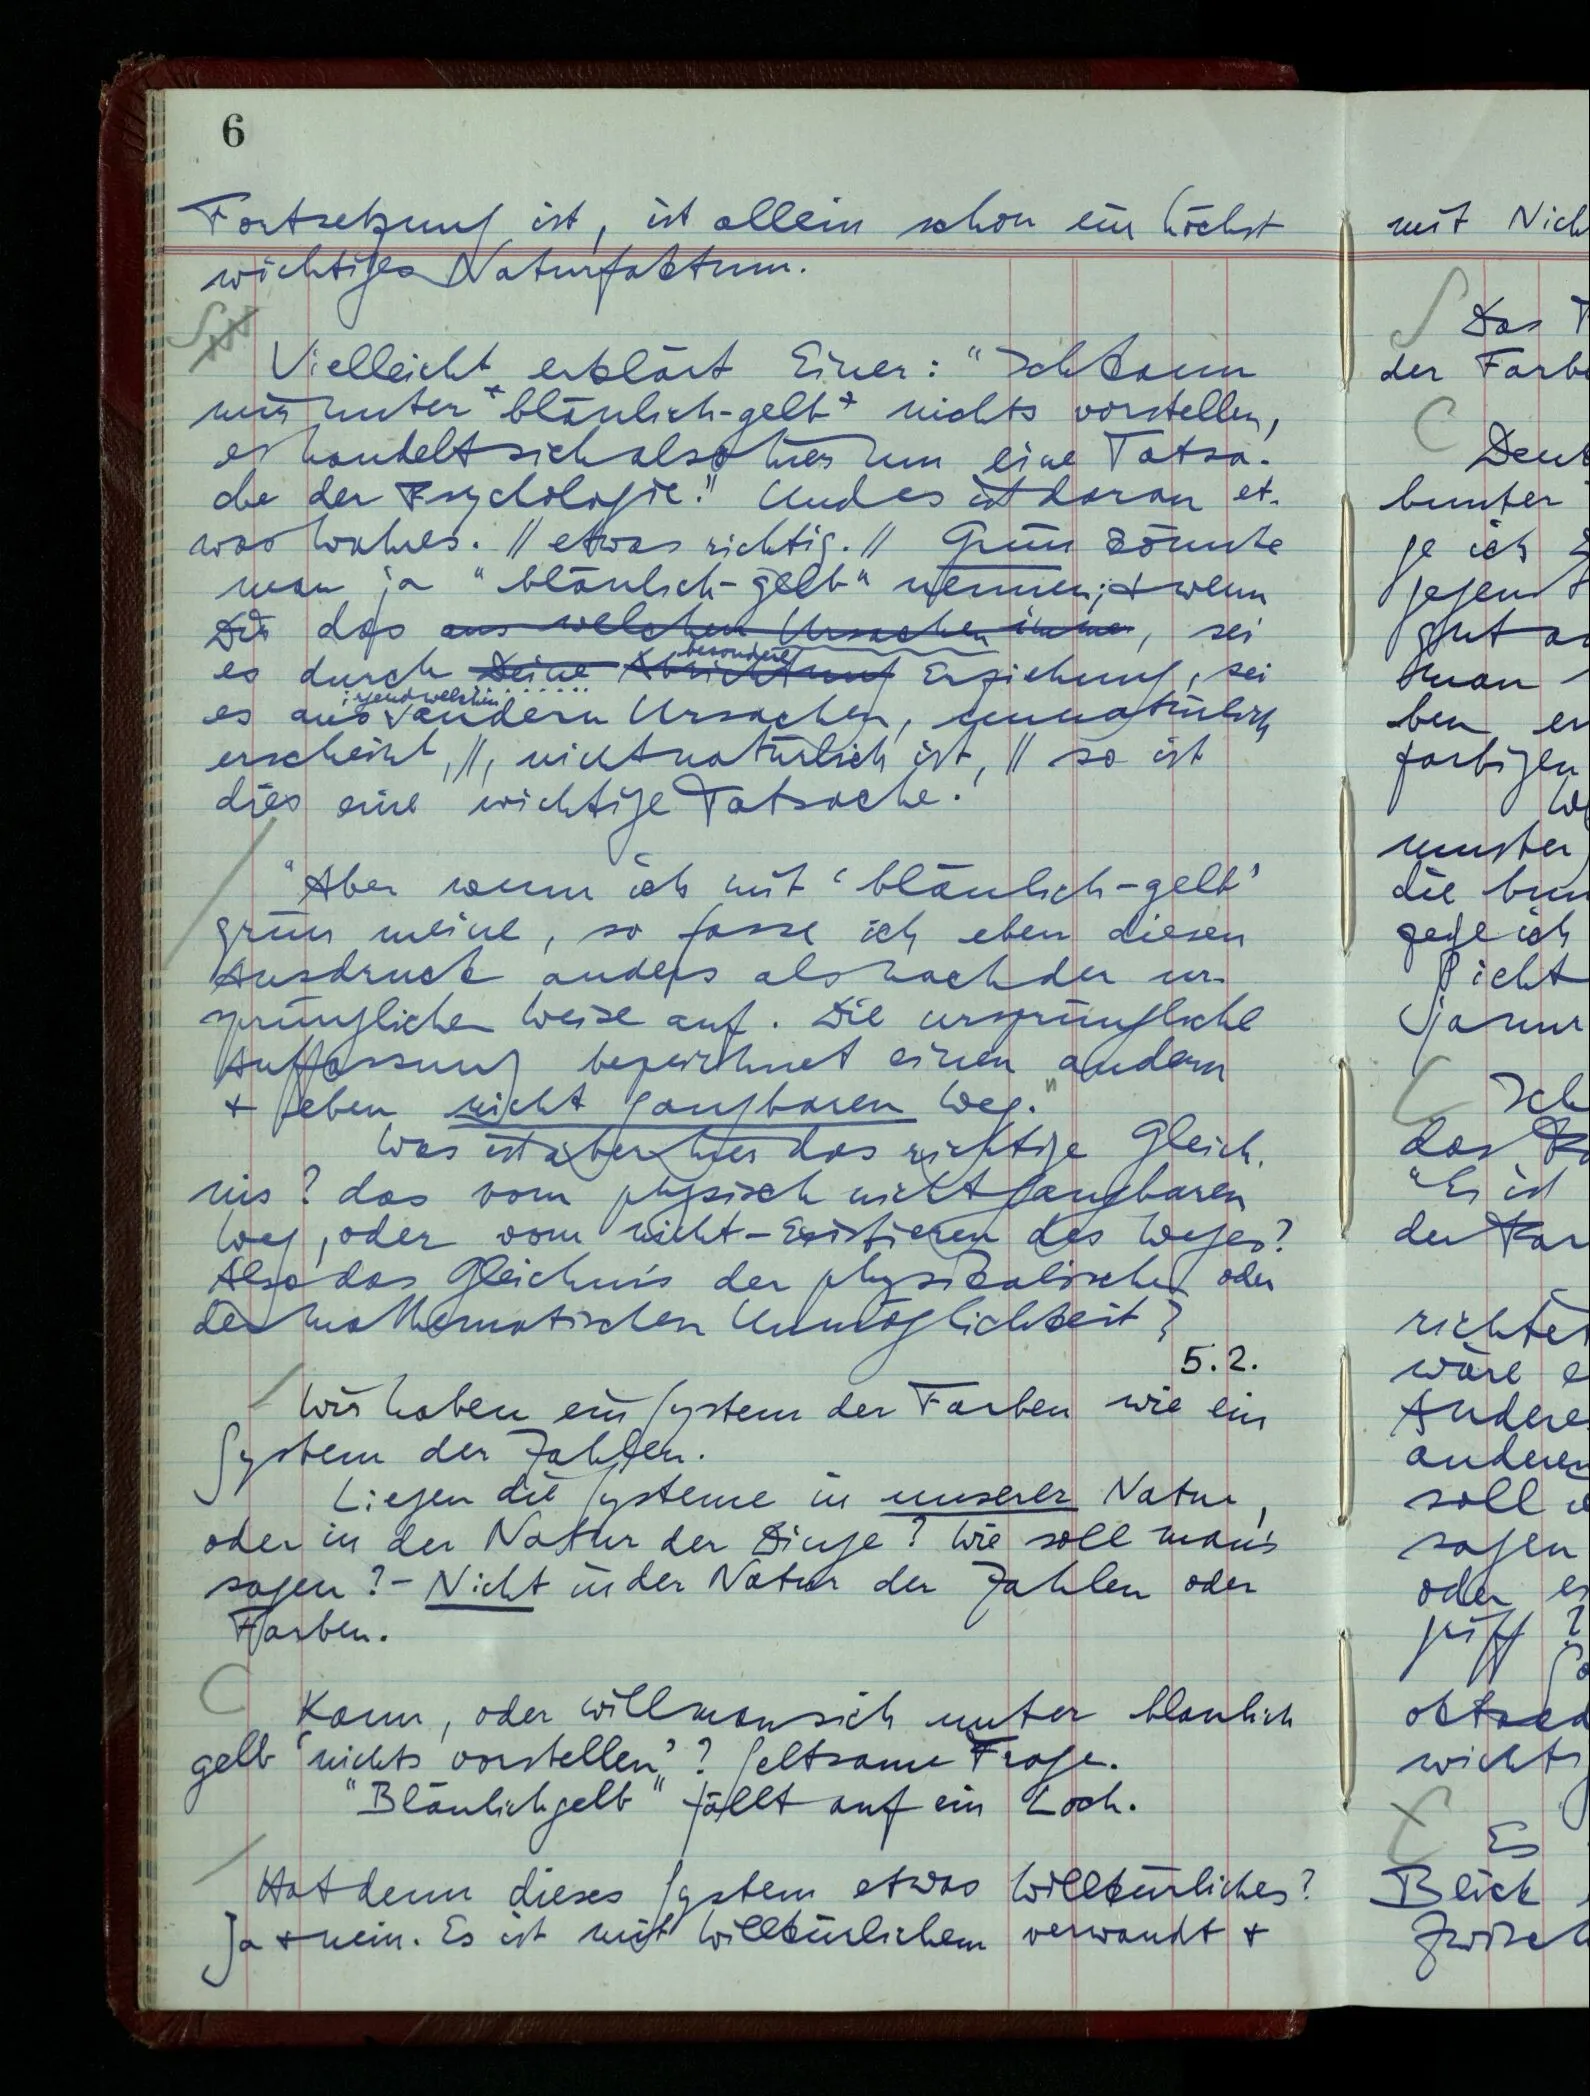 6
Fortsetzung ist, ist allein schon ein höchst
wichtiges Naturfaktum.
Vielleicht erklärt Einer: "Ich kann
mir unter "bläulich-gelb" nichts vorstellen,
es handelt sich also hier um eine Tatsa-
che der Psychologie." Und es ist daran et-
was wahres. // etwas richtig. // Grün könnte
man ja "bläulich-gelb" nennen; & wenn
Dir das aus welchen Ursachen immer, sei
es durch Deine Abrichtung besondere Erziehung, sei
es aus irgendwelchen andern Ursachen, unnatürlich
erscheint, //, nicht natürlich ist, // so ist
dies eine wichtige Tatsache.
"Aber wenn ich mit 'bläulich-gelb'
grün meine, so fasse ich eben diesen
Ausdruck anders als nach der ur-
sprünglichen Weise auf. Die ursprüngliche
Auffassung bezeichnet einen andern
& eben nicht gangbaren Weg."
Was ist aber hier das richtige Gleich-
nis? das vom physisch nicht gangbaren
Weg, oder vom nicht-Existieren des Weges?
Also das Gleichnis der physikalischen oder
der mathematischen Unmöglichkeit?
5.2.
Wir haben ein System der Farben wie ein
System der Zahlen.
Liegen die Systeme in unserer Natur,
oder in der Natur der Dinge? Wie soll man's
sagen? – Nicht in der Natur der Zahlen oder
Farben.
Kann, oder will man sich unter blaulich
gelb 'nichts vorstellen'? Seltsame Frage.
"Bläulichgelb" fällt auf ein Loch.
Hat denn dieses System etwas Willkürliches?
Ja & nein. Es ist mit Willkürlichem verwandt &
mit
Das
der
bunter
je ich
man
ben
farbigen
muster
die
ich
das
"Es ist
der
richtet
wäre
Andere
anderen
soll
sagen
oder es
Es
Blick